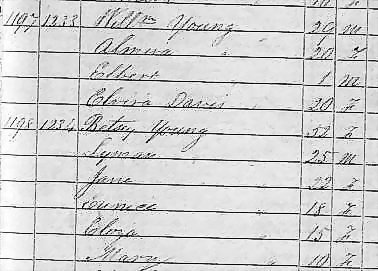 1197 1233 Willm Young 29 m
Almira " 20 F
Elbert 1 m
Elvira Davis 20 F
1198 1234 Betsey Young 52 F
Lyman " 25 m
Jane " 22 F
Eunice " 18 F
Clora " 15 F
Mary " 10 F